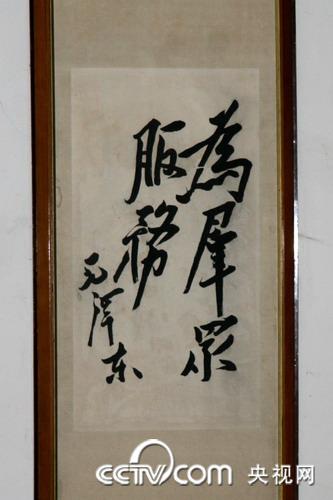 為羣眾
服務
毛澤东
CCTV.com 央视网